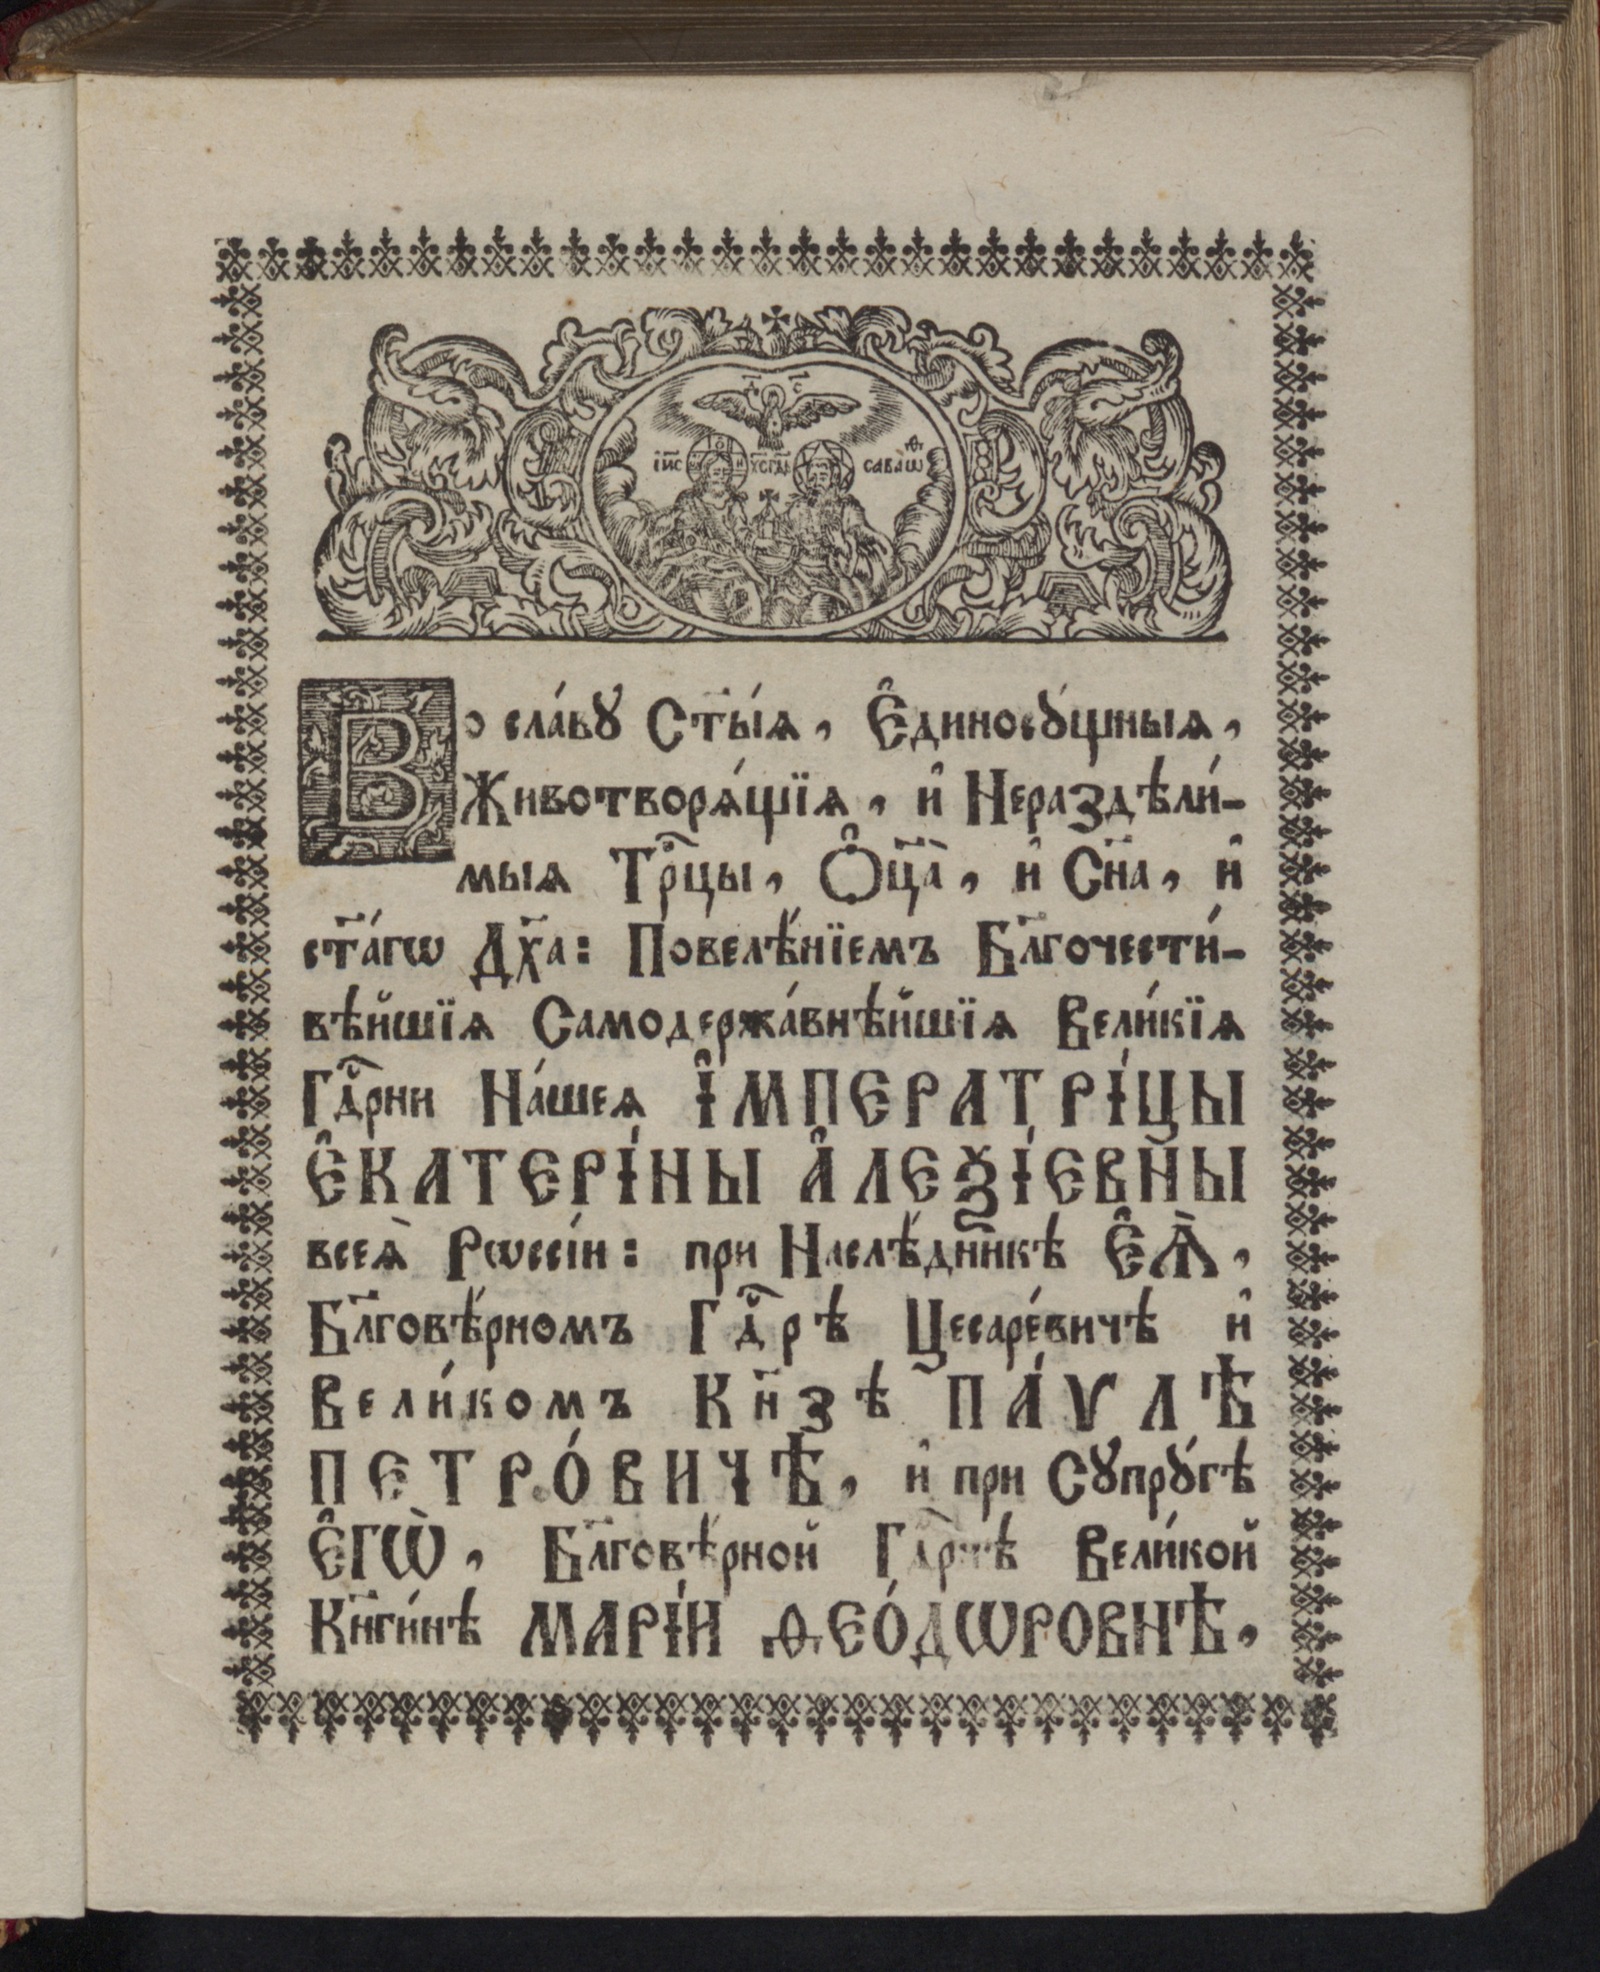 Д҃ С҃
І҆и҃с Х҃с гд҃ь саваѡѳ
Во сла́вꙋ Ст҃ы́ѧ, Є҆диносꙋ́щныѧ,
Животворѧ́щїѧ, и҆ Нераздѣли́-
мыѧ Трⷪ҇цы, Ѻ҆ц҃а̀, и҆ Сн҃а, и҆
ст҃а́гѡ Дх҃а: Повелѣ́нїемъ Бл҃гочести́-
вѣйшїѧ Самодержа́внѣйшїѧ Вели́кїѧ
Гдⷭ҇рни На́шеѧ І҆МПЕРАТРІ́ЦЫ
Є҆КАТЕРІ́НЫ А҆ЛЕѮІ́ЕВНЫ
всеѧ̀ Рѡссі́и: при Наслѣ́дн҃икѣ Є҆Ѧ̀,
Бл҃говѣ́рномъ Гдⷭ҇рѣ Цесаре́вичѣ и҆
Вели́комъ Кн҃зѣ ПА́ѴЛѢ
ПЕТРО́ВИЧѢ, и҆ при Сꙋпрꙋ́гѣ
Є҆ГѠ̀, Бл҃говѣ́рной Гдⷭ҇рнѣ Вели́кой
Кн҃ги́нѣ МАРІ́И ѲЕО́ДѠРОВНѢ,